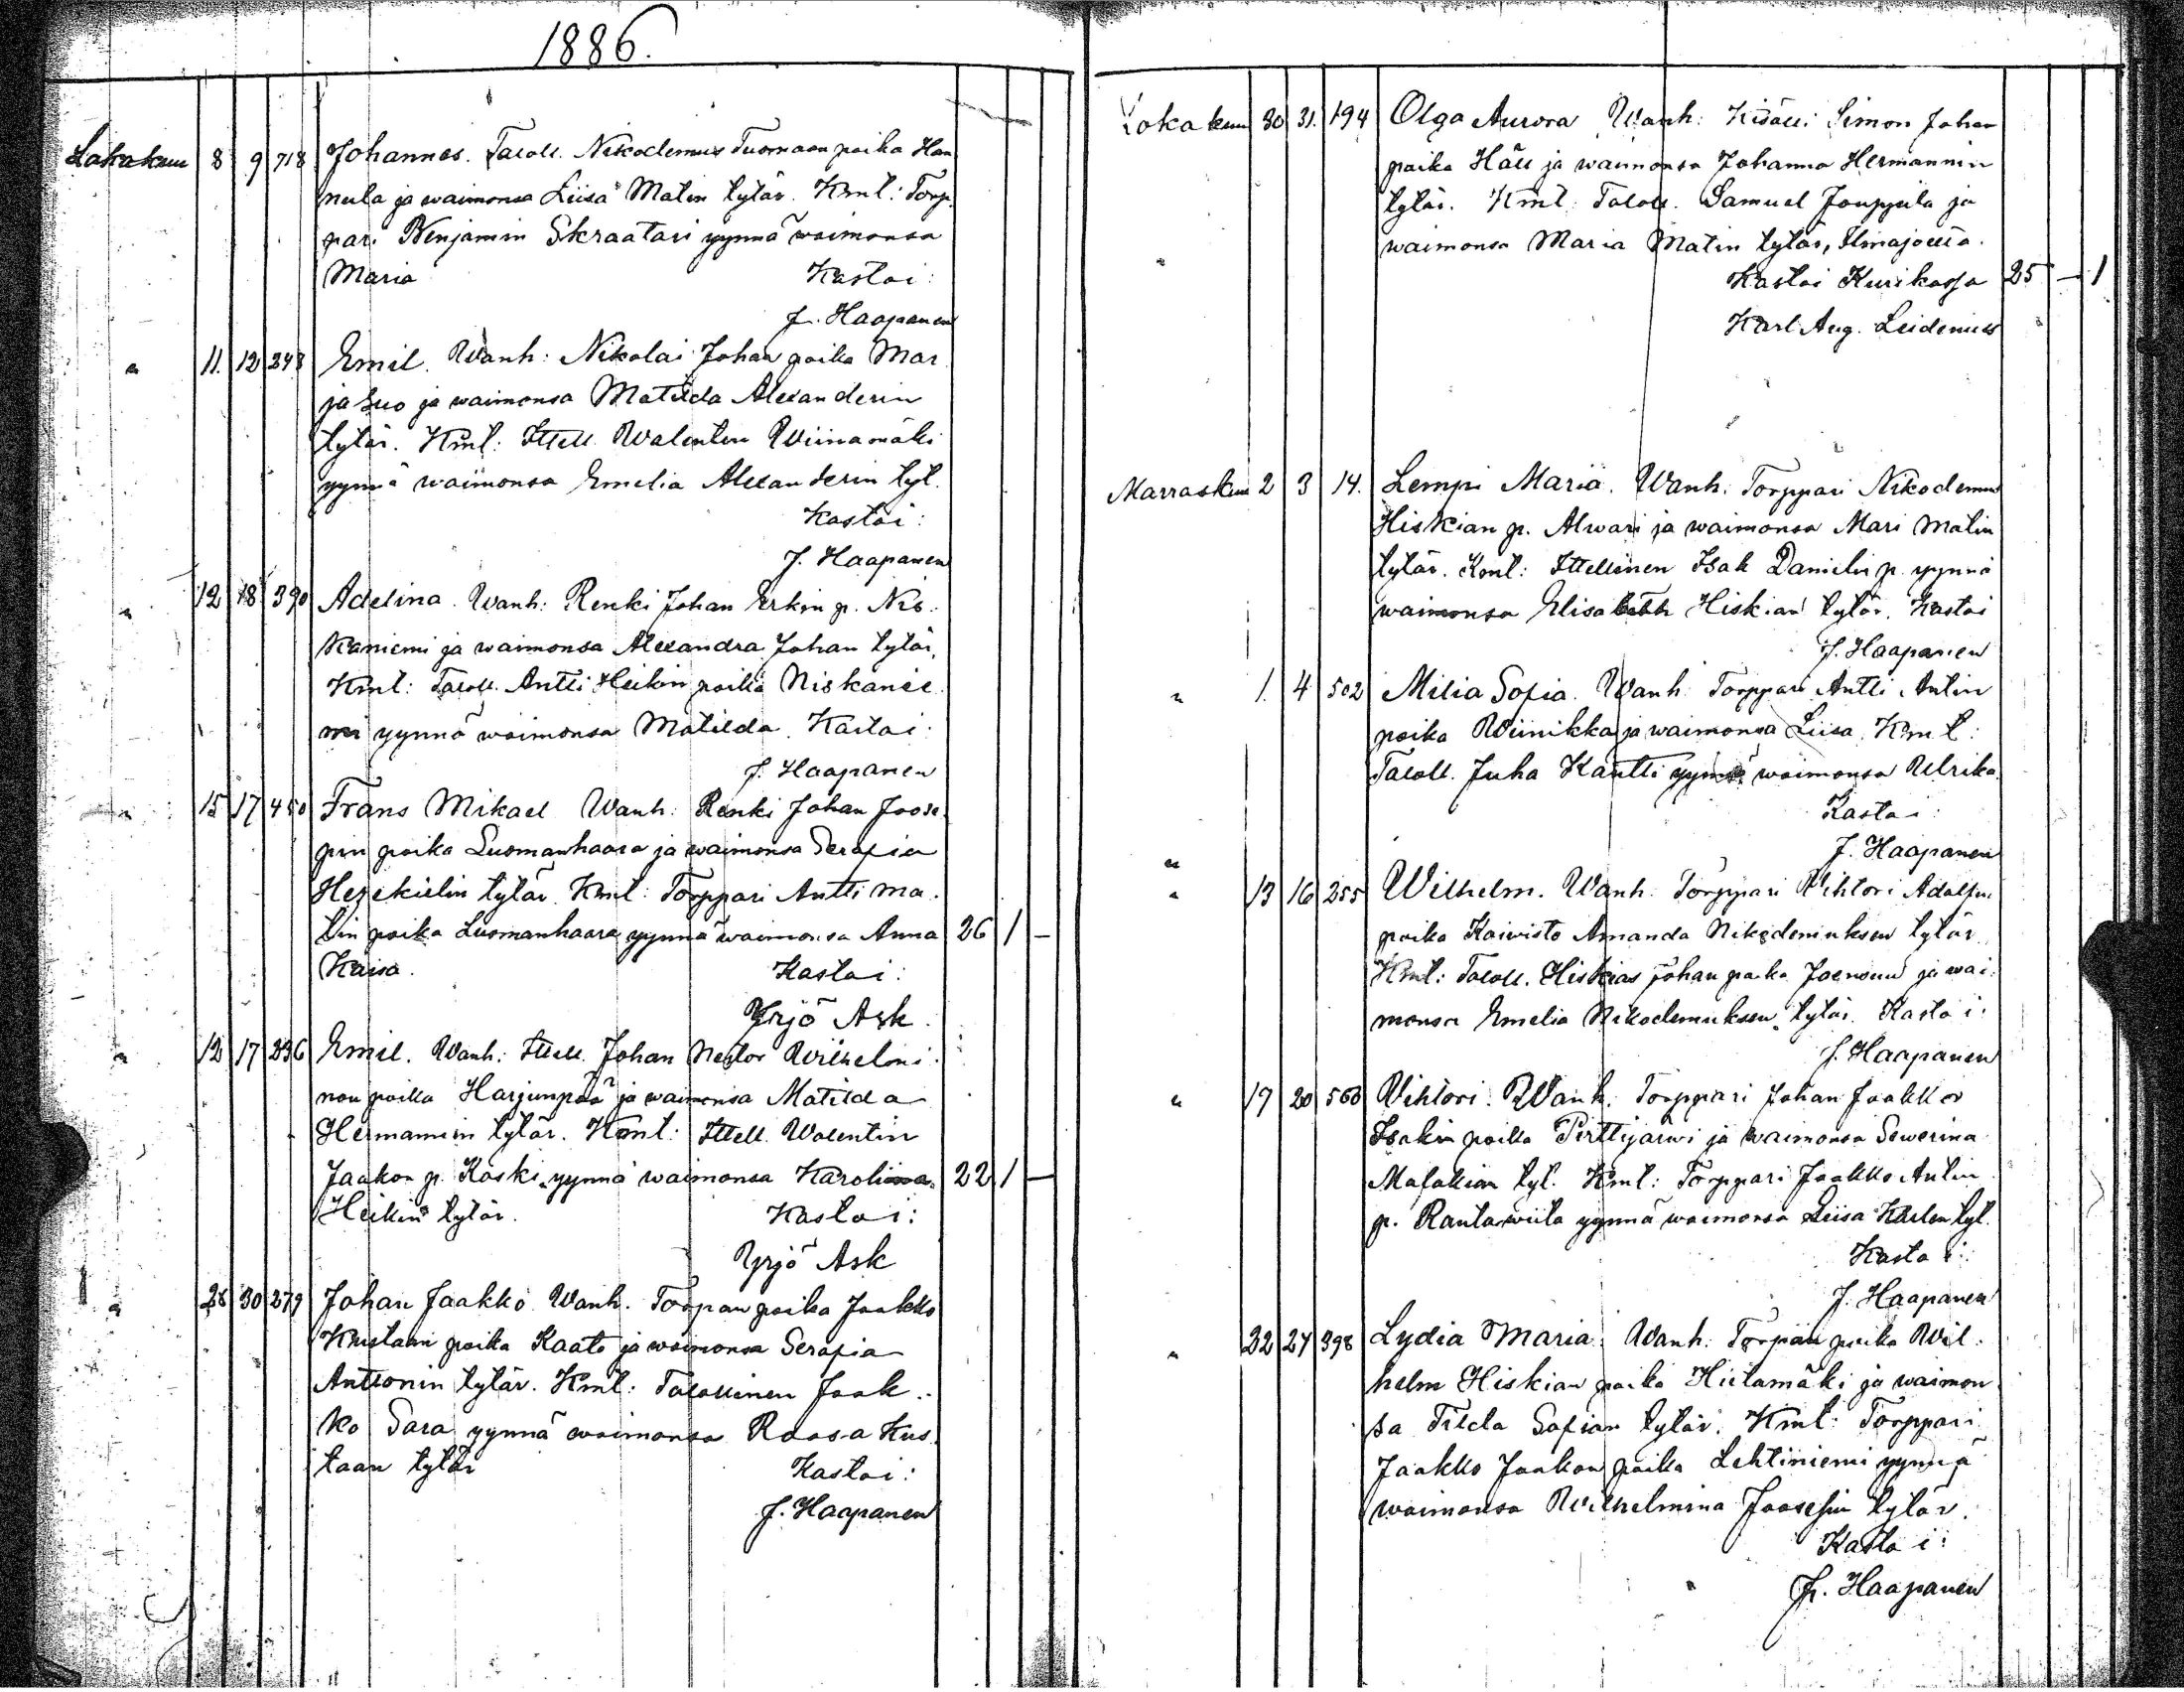 1886.
Lokakuu 8 9 718 Johannes. Taloll. Nikodemus Tuomaan poika Han
nula ja waimonsa Liisa Matin tytär. Kmt: Torp.
pari Benjamin Skraatari yynnä waimonsa
Maria Kastoi:
J. Haapanen
" 11. 12 243 Emil. Wanh: Nikolai Johan poika Mar
jasuo ja waimonsa Matilda Alexanderin
tytär. Kmt: Ittell. Walentin Wiinamäki
yynnä waimonsa Emelia Alexanderin tyt.
Kastoi:
J. Haapanen
" 12 18 390 Adelina. Wanh: Renki Johan Erkin p. Nis.
kaniemi ja waimonsa Alexandra Johan tytär,
Kmt: Taloll. Antti Heikin poika Niskanie
mi yynnä waimonsa Matilda. Kastoi:
J. Haapanen
" 15 17 450 Frans Mikael Wanh: Renki Johan Joose.
pin poika Luomanhaara ja waimonsa Serafia
Hezekielin tytär. Kmt: Torppari Antti Ma.
tin poika Luomanhaara yynnä waimonsa Anna 26 1 –
Kaisa. Kastoi:
Yrjö Ask.
" 12 17 236 Emil. Wanh: Ittell. Johan Nestor Wilhelmi.
non poika Harjunpää ja waimonsa Matilda
Hermannin tytär. Kmt: Ittell. Walentin
Jaakon p. Koski yynnä waimonsa Karoliina 22 1 –
Heikin tytär. Kastoi:
Yrjö Ask
" 28 30 279 Johan Jaakko Wanh. Torpan poika Jaakko
Kustaan poika Kaato ja waimonsa Serafia
Anttonin tytär. Kmt: Talollinen Jaak..
ko Sara yynnä waimonsa Roosa Kus.
taan tytär Kastoi:
J. Haapanen
Lokakuu 30 31. 194 Olga Aurora Wanh: Kisälli Simon Johan
poika Häll ja waimonsa Johanna Hermannin
tytär. Kmt: Taloll. Samuel Jouppila ja
waimonsa Maria Matin tytär, Ilmajoella.
" Kastoi Kurikassa 25 – 1
Karl Aug. Leidenius
Marraskuu 2 3 14. Lempi Maria. Wanh. Torppari Nikodemus
Hiskian p. Alwari ja waimonsa Mari Matin
tytär. Kmt: Ittellinen Isak Danielin p. yynnä
waimonsa Elisabeth Hiskian tytär. Kastoi
J. Haapanen
" 1. 4 502 Milia Sofia. Wanh: Torppari Antti Antin
poika Wiinikka ja waimonsa Liisa. Kmt:
Taloll. Juha Kantti yynnä waimonsa Ulrika.
Kastoi:
" J. Haapanen
" 13 16 255 Wilhelm. Wanh. Torppari Vihtori Adolfin
poika Koiwisto Amanda Nikodemuksen tytär.
Kmt: Taloll. Hiskias Johan poika Joensuu ja wai.
monsa Emelia Nikodemuksen tytär. Kastoi:
J. Haapanen
" 19 20 560 Vihtori. Wanh. Torppari Johan Jaakko
Isakin poika Pirttijärwi ja waimonsa Sewerina
Malakian tyt. Kmt: Torppari Jaakko Antin
p. Rantawiita yynnä waimonsa Liisa Karlen tyt.
Kastoi:
J. Haapanen
" 22 24 398 Lydia Maria. Wanh: Torpan poika Wil.
helm Hiskian poika Hietamäki ja waimon
sa Tilda Sofian tytär. Kmt: Torppari
Jaakko Jaakon poika Lehtiniemi yynnä
waimonsa Wilhelmina Joosefin tytär.
Kastoi:
J. Haapanen